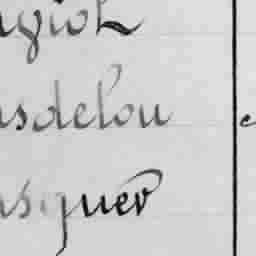 giol
sdelou
squer